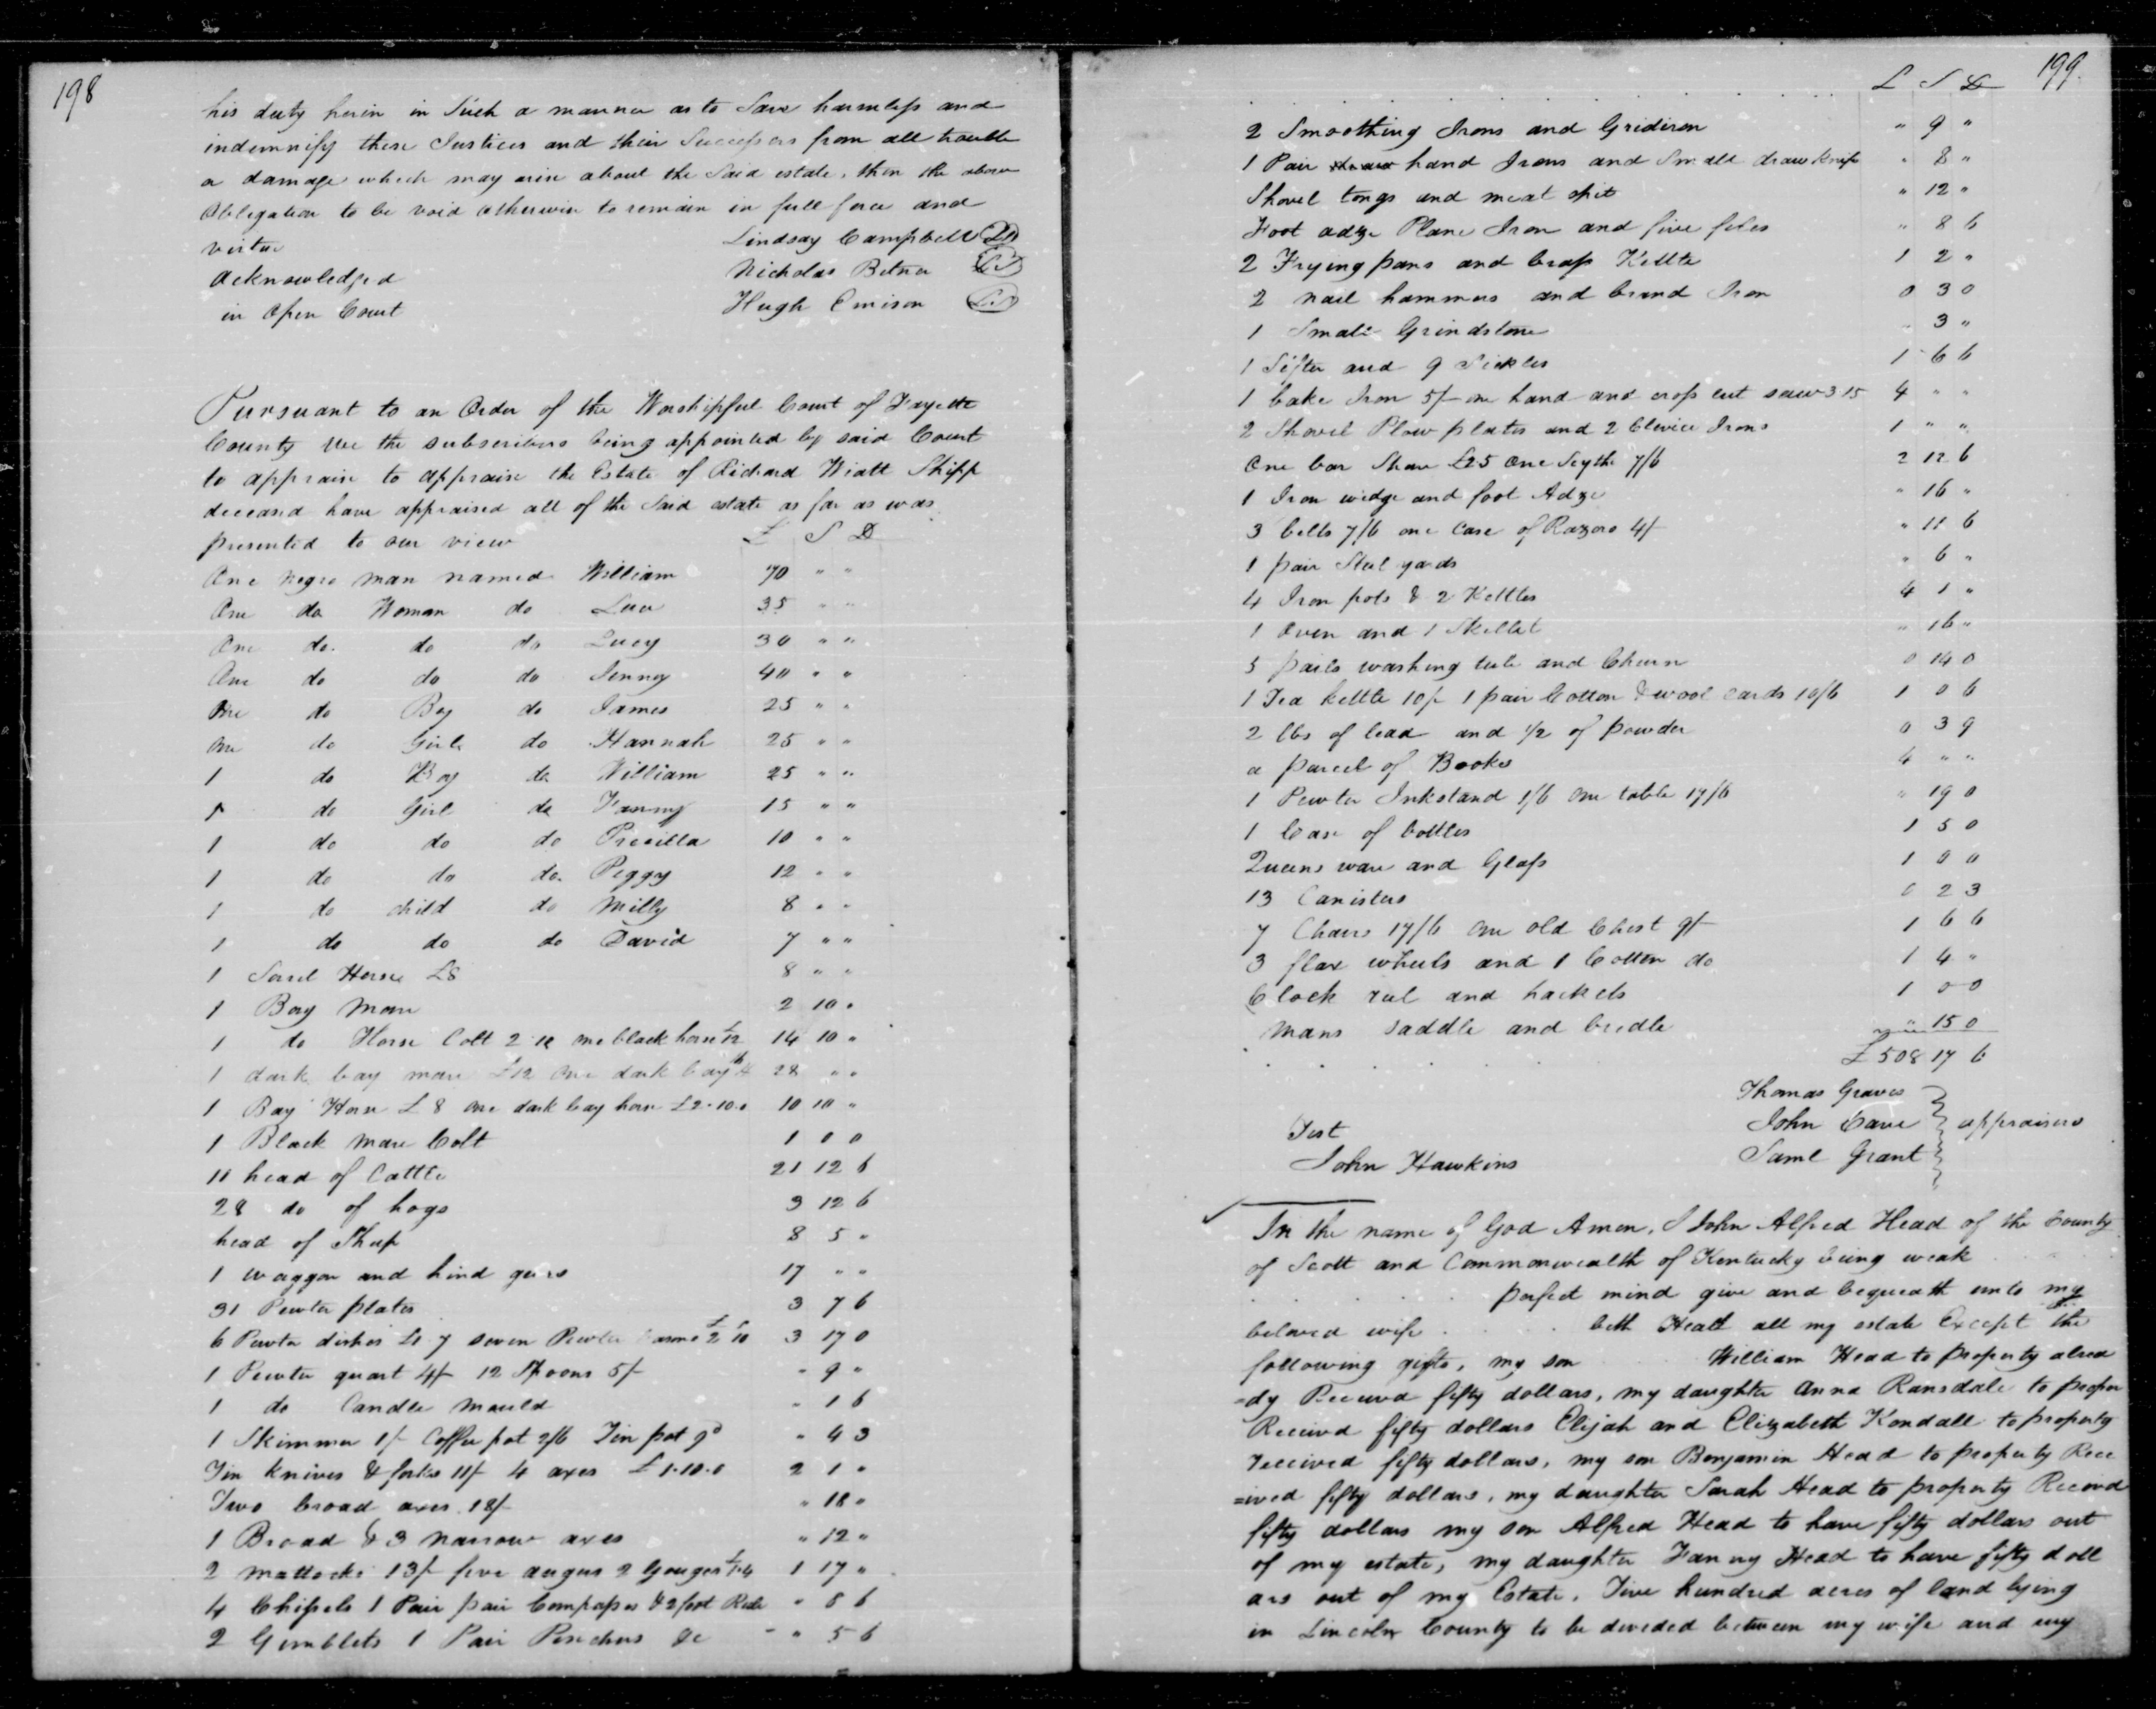 198
his duty herin in Such a manner as to Save harmless and
indemnify these Justices and their Successors from all trouble
or damage which may arise about the Said estate, then the above
Obligation to be void otherwise to remain in full force and
virtue
Lindsay Campbell
acknowledged
Nicholas Betner
in Open Court
Hugh Emison
Pursuant to an Order of the Worshipful Court of Fayette
County we the subscribers being appointed by said Court
to appraise to appraise the Estate of Richard Wiatt Shipp
deceased have appraised all of the Said estate as far as was
presented to our view £ S D
One negro man named William 70 " "
One do Woman do 35 " "
One do. do do Lucy 30 " "
One do do do Jenny 40 " "
One do Boy do James 25 " "
One do Girl do Hannah 25 " "
1 do Boy do William 25 " "
1 do Girl do Fanny 15 " "
1 do do do Precilla 10 " "
1 do do do. Peggy 12 " "
1 do child do Milly 8 " "
1 do do do David 7 " "
1 Sorrel Horse £8 8 " "
1 Bay Mare 2 10 "
1 do Horse Colt 2 10 one black horse £12 14 10 "
1 dark bay mare £12 One dark bay 28 " "
1 Bay Horse £8 one dark bay horse £2.10.0 10 10 "
1 Black mare Colt 1 0 0
11 head of Cattle 21 12 6
28 do of hogs 9 12 6
head of Sheep 8 5 "
1 waggon and hind gears 17 " "
31 Pewter plates 3 7 6
6 Pewter dishes £1 7 seven Pewter £2 10 3 17 0
1 Pewter quart 4/- 12 Spoons 5/- " 9 "
1 do Candle mould " 1 6
1 Skimmer 1/- Coffee pot 2/6 Tin pot 9d " 4 3
Tin knives & forks 11/- 4 axes £1.10.0 2 1 "
Two broad axes 18/- " 18 "
1 Broad & 3 narrow axes " 12 "
2 mattocks 13/- five augers 2 Gouges £1.4 1 17 "
4 Chissels 1 Pair pair Compasses & 2 foot Rule " 8 6
2 Gimblets 1 Pair Pinchers &c " 5 6
199.
£ S D
2 Smoothing Irons and Gridiron " 9 "
1 Pair hand Irons and Small draw knife " 8 "
Shovel tongs and meat spit " 12 "
Foot adze Plane Iron and five files " 8 6
2 Frying pans and brass Kettle 1 2 "
2 nail hammers and brand Iron 0 3 0
1 Small Grindstone " 3 "
1 Sifter and 9 Sickles 1 6 6
1 Cake Iron 5/- one hand and cross cut saw 3 15 4 " "
2 Shovel Plow plates and 2 Clivice Irons 1 " "
One bar Share £25 One Scythe 7/6 2 12 6
1 Iron wedge and foot Adze " 16 "
3 bells 7/6 one Case of Razors 4/- " 11 6
1 pair Steel yards " 6 "
4 Iron pots & 2 Kettles 4 1 "
1 Oven and 1 Skillet " 16 "
5 pails washing tub and Churn 0 14 0
1 Tea kettle 10/- 1 pair Cotton & wool cards 10/6 1 0 6
2 lbs of lead and 1/2 of powder 0 3 9
a parcel of Books 4 " "
1 Pewter Inkstand 1/6 one table 17/6 " 19 0
1 Case of bottles 1 5 0
Queens ware and Glass 1 0 0
13 Canisters 0 2 3
7 Chairs 17/6 one old Chest 9/- 1 6 6
3 flax wheels and 1 Cotton do 1 4 "
Clock reel and hackels 1 0 0
Mans saddle and bridle " 15 0
£508 17 6
Thomas Graves
Test
John Cave } appraisers
John Hawkins
Saml Grant
In the name of God Amen, I John Alfred Head of the County
of Scott and Commonwealth of Kentucky being weak
perfect mind give and bequeath unto my
beloved wife beth Head all my estate Except the
following gifts, my son William Head to property alrea
=dy Received fifty dollars, my daughter Anna Ransdale to proper
Received fifty dollars Elijah and Elizabeth Kendall to property
received fifty dollars, my son Benjamin Head to property Rece
=ived fifty dollars, my daughter Sarah Head to property Received
fifty dollars my son Alfred Head to have fifty dollars out
of my estate, my daughter Fanny Head to have fifty doll
ars out of my Estate. Five hundred acres of land lying
in Lincoln County to be devided between my wife and my